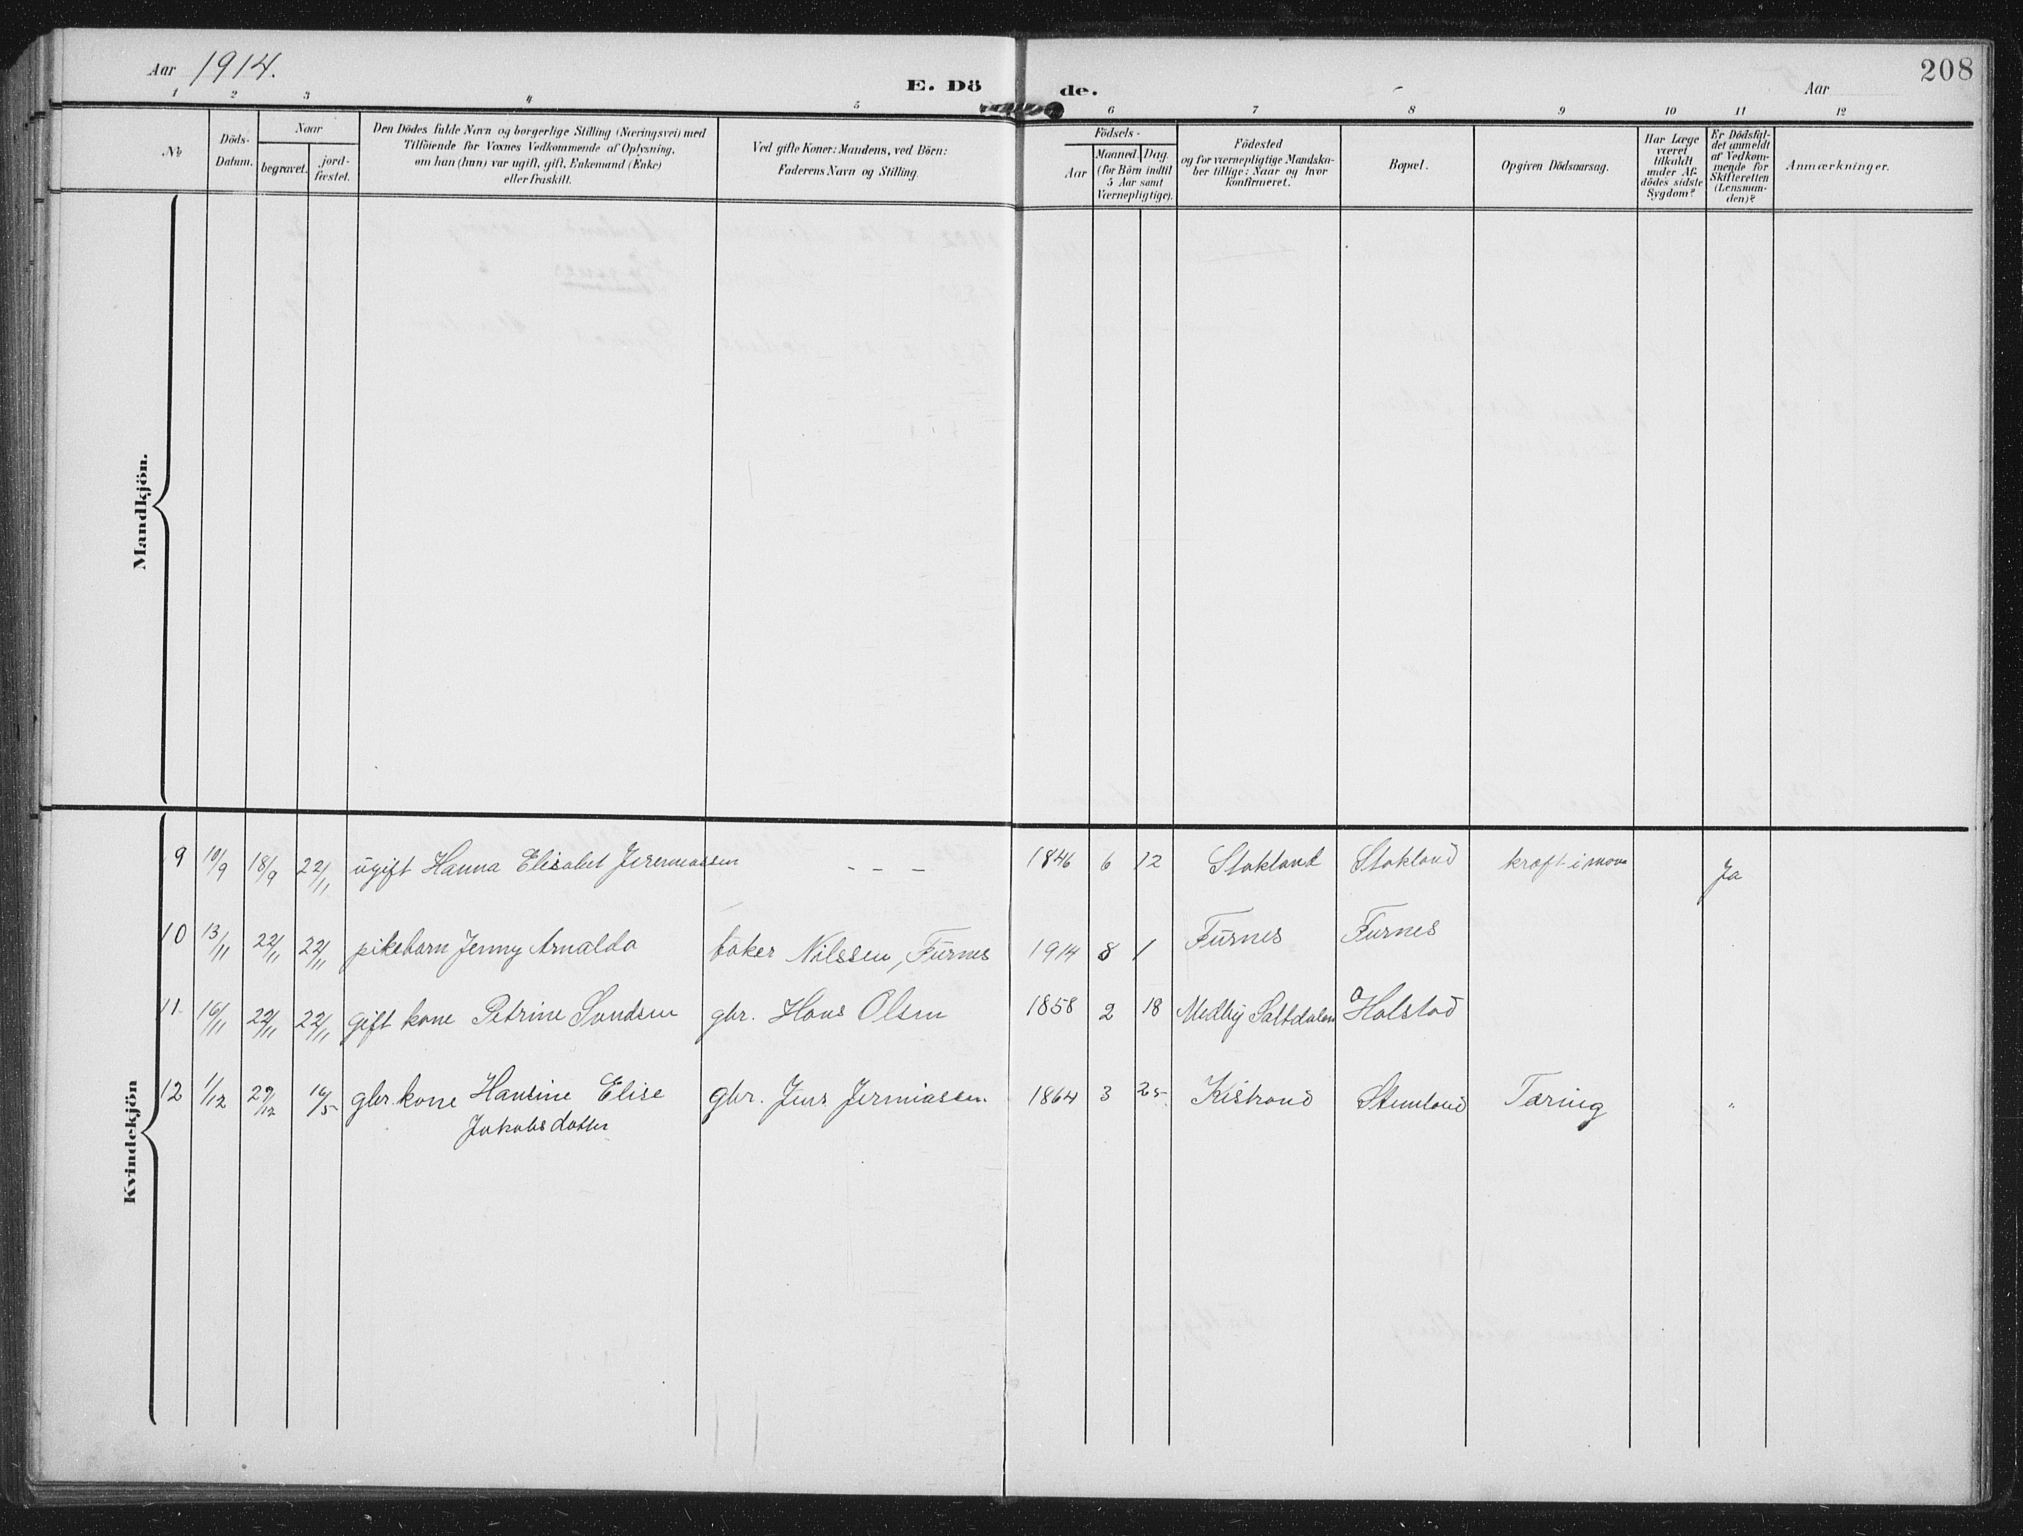 Aar 1914. E. Dö de. Aar 208
1 2 3 4 5 6 7 8 9 10 11 12
№
Döds-Datum.
Naar
begravet.
jord-fæstet.
Den Dödes fulde Navn og borgerlige Stilling (Næringsvei) med
Tilföiende for Voxnes Vedkommende af Oplysning,
om han (hun) var ugift, gift, Enkemand (Enke)
eller fraskilt.
Ved gifte Koner: Mandens, ved Börn:
Faderens Navn og Stilling.
Födsels-
Aar
Maaned. Dag.
(for Börn indtil
5 Aar samt
Værnepligtige).
Födested
og for værnepligtige Mandska-
ber tillige: Naar og hvor
konfirmeret.
Bopæl.
Opgiven Dödsaarsag.
Har Læge
været
tilkaldt
under Af-
dödes sidste
Sygdom?
Er Dödsfal-
det anmeldt
af Vedkom-
mende for
Skifteretten
(Lensman-
den)?
Anmærkninger.
Mandkjön.
Kvindekjön
9 10/9 18/9 22/11 ugift Hanna Elisabet Jeremiassen - - - 1846 6 12 Stokland Stokland kræft i mave Ja
10 13/11 22/11 22/11 pikebarn Jenny Arnalda baker Nilssen, Furnes 1914 8 1 Furnes Furnes
11 16/11 22/11 22/11 gift kone Petrine Svendsen gbr. Hans Olsen 1858 2 18 Medby Saltdalen Holstad
12 1/12 29/12 16/5 gbr. kone Hansine Elise gbr. Jens Jermiassen 1864 3 25. Kistrand Stemland Tæring "
Jakobsdatter